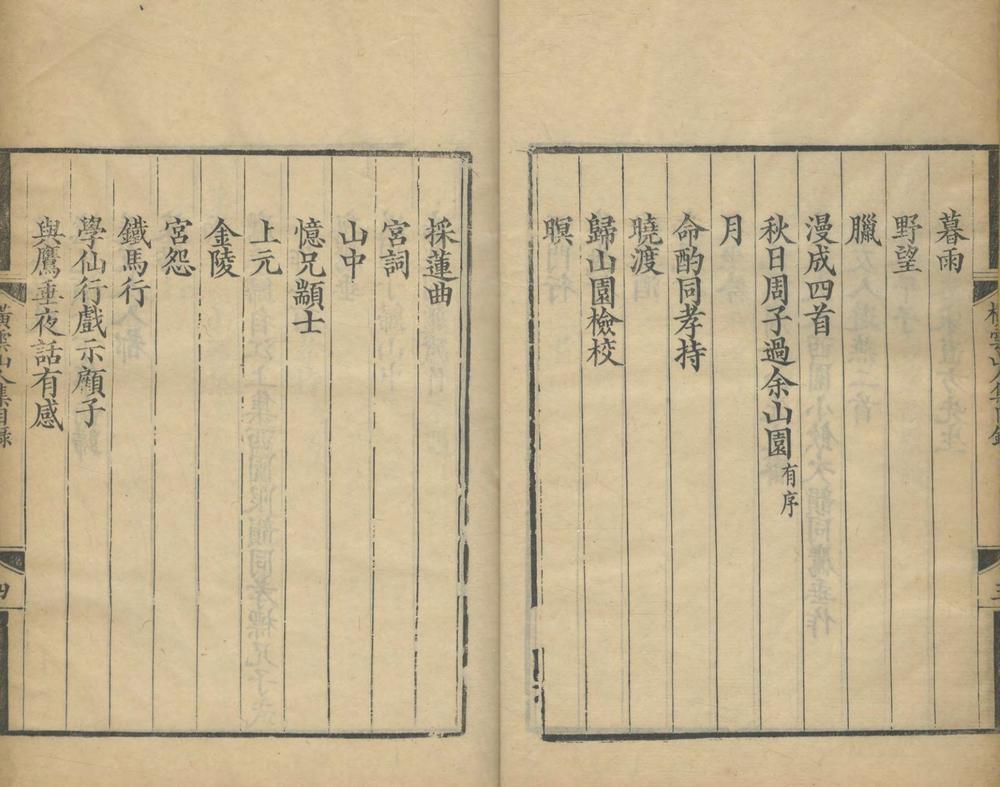 暮雨
野望
臘
漫成四首
秋日周子過余山園有序
月
命酌同孝持
曉渡
歸山園檢校
暝
採蓮曲
宮詞
山中
憶兄顓士
上元
金陵
宮怨
鐵馬行
學仙行戲示顧子
與鷹垂夜話有感
橫雲山人集目錄
四